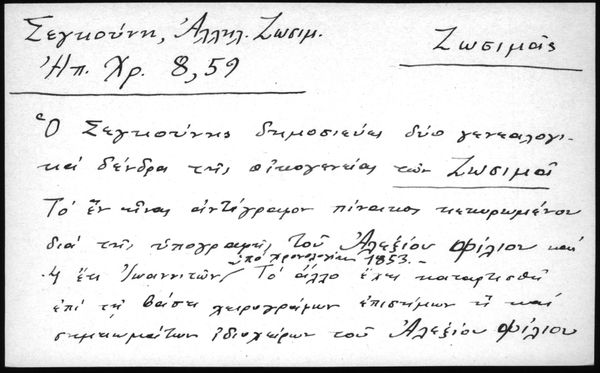 Σεγκούνη, Ἀλληλ. Ζωσιμ.
Ζωσιμᾶς
Ἠπ. Χρ. 8, 59
Ὁ Σεγκούνης δημοσιεύει δύο γενεαλογι-
κά δένδρα τῆς οἰκογενείας τῶν Ζωσιμᾶ
Τό ἕν εἶναι ἀντίγραφον πίνακος κεκυρωμένου
διά τῆς ὑπογραφῆς τοῦ Ἀλεξίου Φίλιου καί
ὑπό χρονολογίαν 1853.-
4 ἔτι Ἰωαννιτῶν Τό ἄλλο ἔχει καταρτισθῆ
ἐπί τῇ βάσει χειρογράφων ἐπισήμων ἤ καί
σημειωμάτων ἰδιοχείρων τοῦ Ἀλεξίου Φίλιου